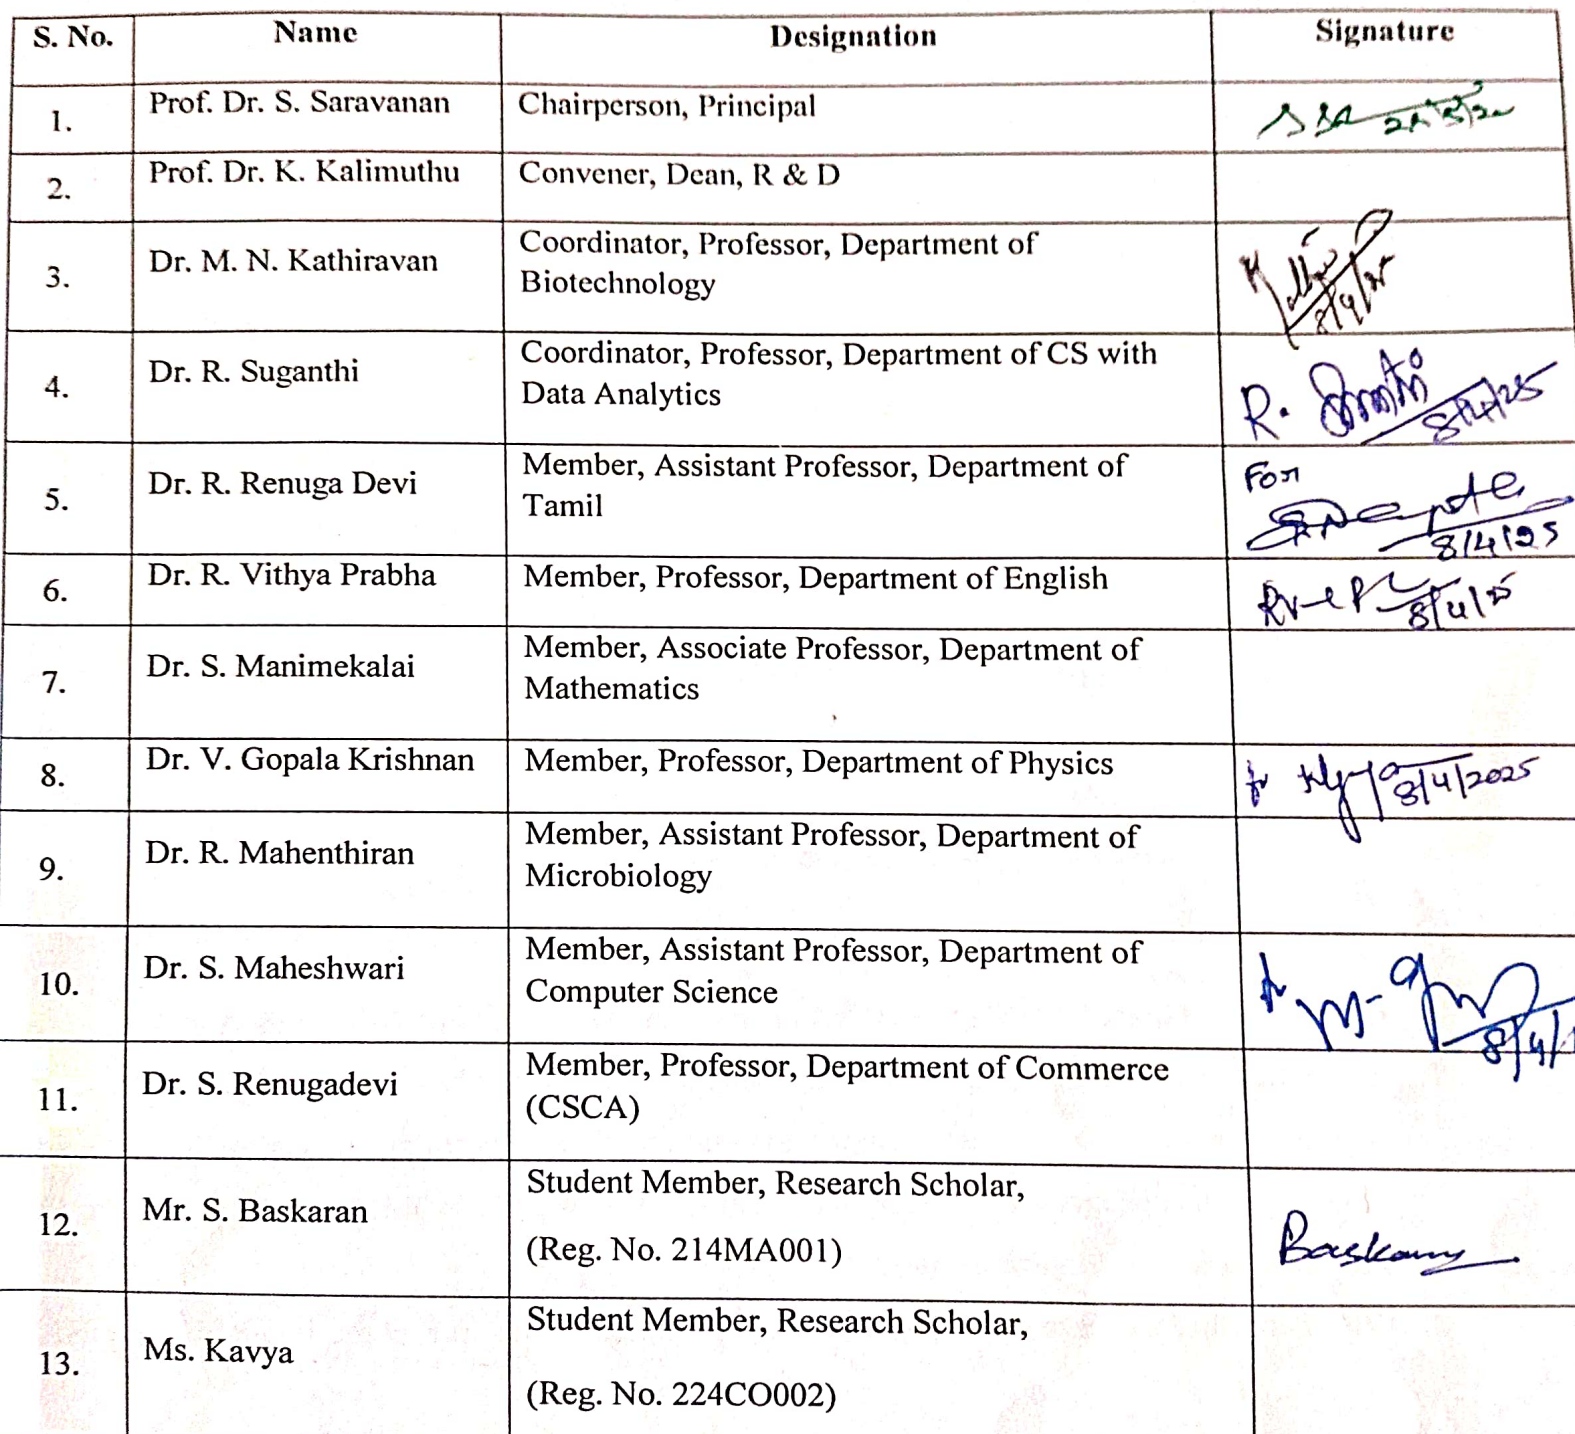 S. No. Name Designation Signature
1. Prof. Dr. S. Saravanan Chairperson, Principal
2. Prof. Dr. K. Kalimuthu Convener, Dean, R & D
3. Dr. M. N. Kathiravan Coordinator, Professor, Department of
Biotechnology
8/4/25
4. Dr. R. Suganthi Coordinator, Professor, Department of CS with
Data Analytics
R.
8/4/25
5. Dr. R. Renuga Devi Member, Assistant Professor, Department of
Tamil
For
8/4/25
6. Dr. R. Vithya Prabha Member, Professor, Department of English
8/4/25
7. Dr. S. Manimekalai Member, Associate Professor, Department of
Mathematics
8. Dr. V. Gopala Krishnan Member, Professor, Department of Physics
8/4/2025
9. Dr. R. Mahenthiran Member, Assistant Professor, Department of
Microbiology
10. Dr. S. Maheshwari Member, Assistant Professor, Department of
Computer Science
8/4/
11. Dr. S. Renugadevi Member, Professor, Department of Commerce
(CSCA)
12. Mr. S. Baskaran Student Member, Research Scholar,
(Reg. No. 214MA001)
Baskaran
13. Ms. Kavya Student Member, Research Scholar,
(Reg. No. 224CO002)